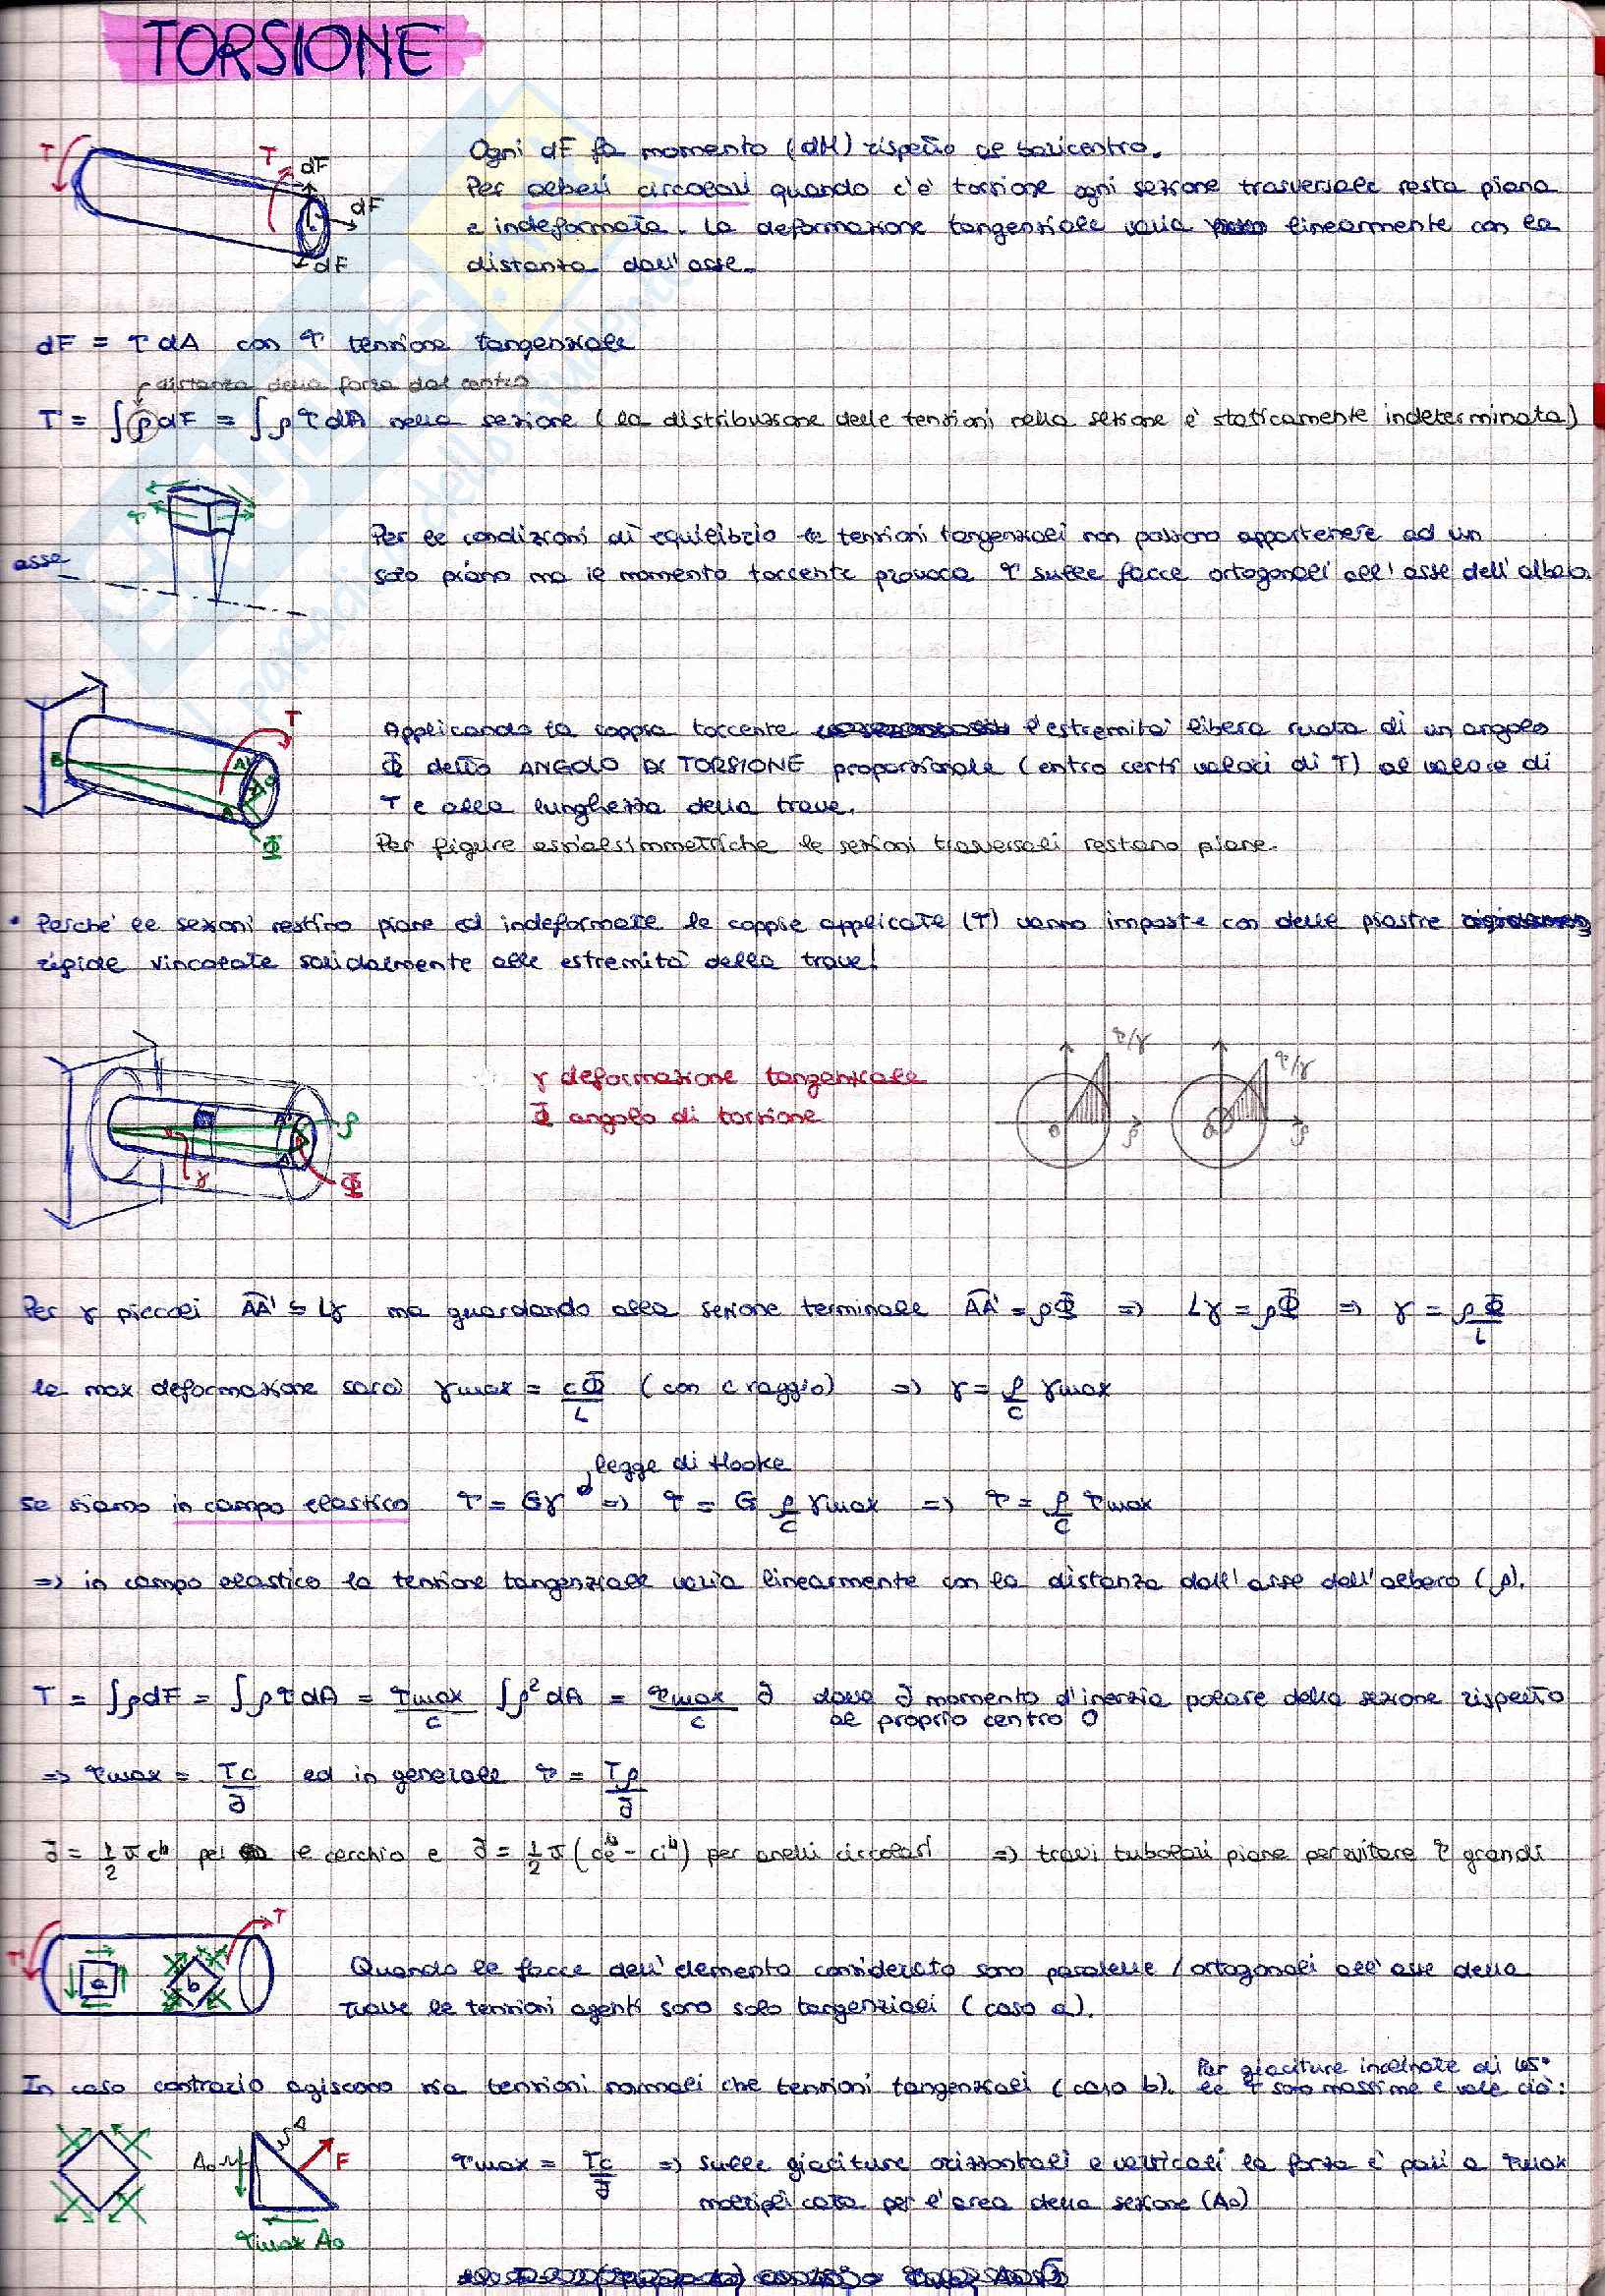 TORSIONE
T T dF dF dF
Ogni dF fa momento (dM) rispetto al baricentro.
Per alberi circolari quando c'è torsione ogni sezione trasversale resta piana
e indeformata. La deformazione tangenziale varia linearmente con la
distanza dall'asse.
dF = τ dA con τ tensione tangenziale
distanza della forza dal centro
T = ∫ρdF = ∫ρ τ dA nella sezione (la distribuzione delle tensioni nella sezione è staticamente indeterminata)
τ
asse
Per le condizioni di equilibrio le tensioni tangenziali non possono appartenere ad un
solo piano ma il momento torcente provoca τ sulle facce ortogonali all'asse dell'albero.
T B A' A Φ
Applicando la coppia torcente l'estremità libera ruota di un angolo
Φ detto ANGOLO DI TORSIONE proporzionale (entro certi valori di T) al valore di
T e alla lunghezza della trave.
Per figure assialsimmetriche le sezioni trasversali restano piane.
• Perchè le sezioni restino piane ed indeformate le coppie applicate (T) vanno imposte con delle piastre
rigide vincolate solidalmente alle estremità della trave!
A' A ρ γ Φ
γ deformazione tangenziale
Φ angolo di torsione
τ/γ ρ O
τ/γ ρ O
Per γ piccoli AA' ≅ Lγ ma guardando alla sezione terminale AA' = ρΦ => Lγ = ρΦ => γ = ρΦ/L
la max deformazione sarà γmax = cΦ/L (con c raggio) => γ = ρ/c γmax
legge di Hooke
se siamo in campo elastico τ = Gγ => τ = G ρ/c γmax => τ = ρ/c τmax
=> in campo elastico la tensione tangenziale varia linearmente con la distanza dall'asse dell'albero (ρ).
T = ∫ρdF = ∫ρ τ dA = τmax/c ∫ρ² dA = τmax/c J dove J momento d'inerzia polare della sezione rispetto
al proprio centro O
=> τmax = Tc/J ed in generale τ = Tρ/J
J = 1/2 π c⁴ per il cerchio e J = 1/2 π (ce⁴ - ci⁴) per anelli circolari => travi tubolari piane per evitare τ grandi
T T a b
Quando le facce dell'elemento considerato sono parallele / ortogonali all'asse della
trave le tensioni agenti sono solo tangenziali (caso a).
In caso contrario agiscono sia tensioni normali che tensioni tangenziali (caso b). Per giaciture inclinate di 45°
le τ sono massime e vale ciò:
Ao A F
τmax Ao
τmax = Tc/J => sulle giaciture orizzontali e verticali la forza è pari a τmax
moltiplicata per l'area della sezione (Ao)